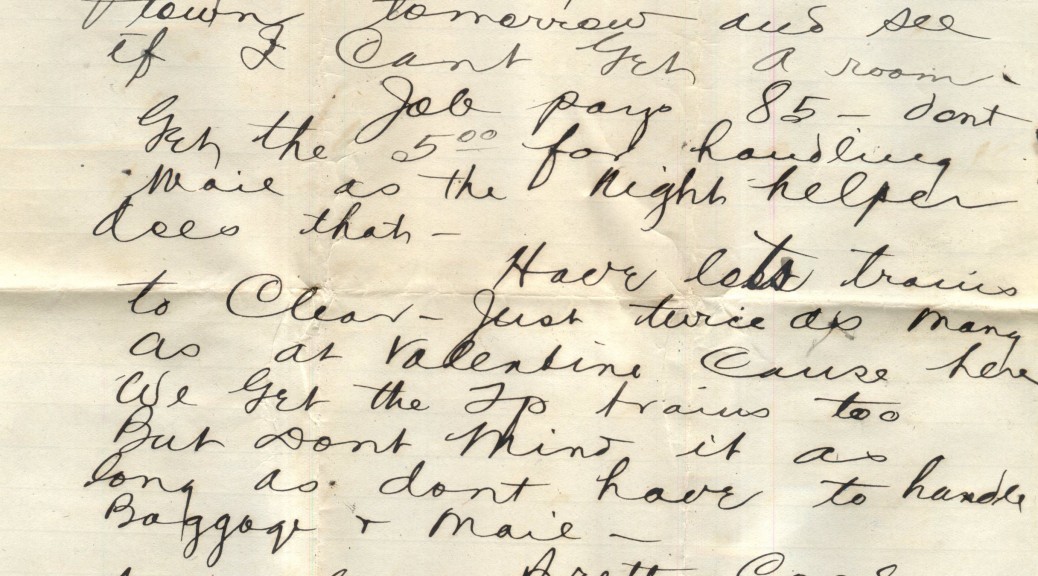 town tomorrow and see
if I Cant Get A room.
Job pays 85 — dont
Get the 5 00 for handling
Mail as the Night helper
does that —
Have lots trains
to Clear — Just twice as many
as at Valentine Cause here
We Get the Tp trains too
But Dont Mind it as
long as dont have to handle
Baggage + Mail —